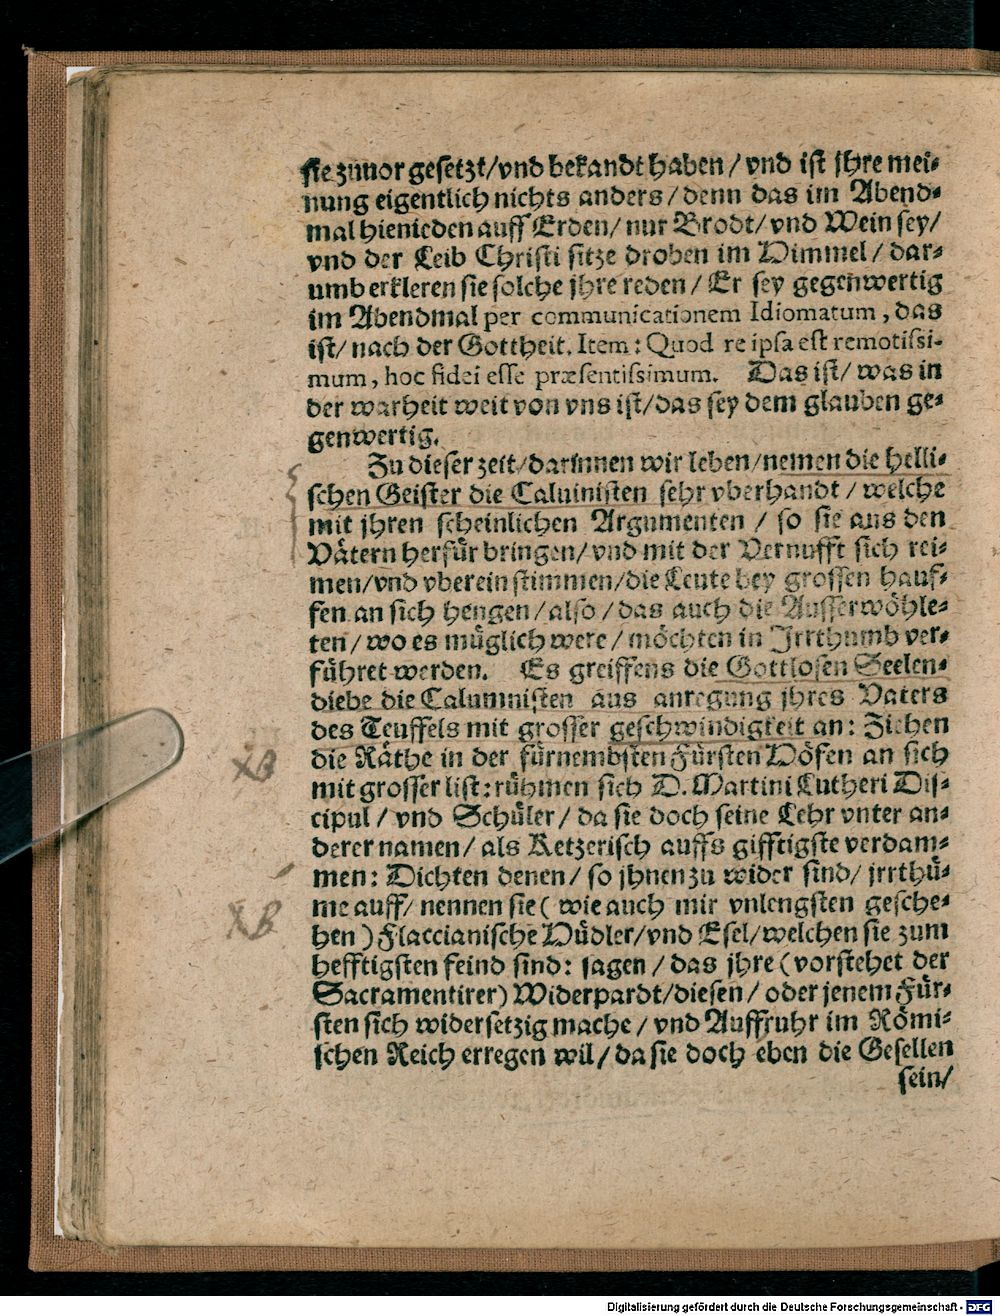 sie zuuor gesetzt/vnd bekandt haben / vnd ist jhre mei-
nung eigentlich nichts anders / denn das im Abend-
mal hienieden auff Erden/ nur Brodt/ vnd Wein sey/
vnd der Leib Christi sitze droben im Himmel / dar-
umb erkleren sie solche jhre reden / Er sey gegenwertig
im Abendmal per communicationem Idiomatum, das
ist/ nach der Gottheit. Item: Quod re ipsa est remotissi-
mum, hoc fidei esse præsentissimum. Das ist/ was in
der warheit weit von vns ist/das sey dem glauben ge-
genwertig.
Zu dieser zeit/darinnen wir leben/nemen die helli-
schen Geister die Caluinisten sehr vberhandt / welche
mit jhren scheinlichen Argumenten / so sie aus den
Vätern herfür bringen/vnd mit der Vernufft sich rei-
men/vnd vberein stimmen/die Leute bey grossen hauf-
fen an sich hengen / also / das auch die Ausserwöhle-
ten / wo es müglich were / möchten in Jrrthumb ver-
führet werden. Es greiffens die Gottlosen Seelen-
diebe die Caluinisten aus anregung jhres Vaters
des Teuffels mit grosser geschwindigkeit an: Zihen
die Räthe in der fürnembsten Fürsten Höfen an sich
mit grosser list: rühmen sich D. Martini Lutheri Dis-
cipul / vnd Schüler / da sie doch seine Lehr vnter an-
derer namen/ als Ketzerisch auffs gifftigste verdam-
men: Dichten denen/ so jhnen zu wider sind/ jrrthü-
me auff/ nennen sie ( wie auch mir vnlengsten gesche-
hen ) Flaccianische Hüdler/vnd Esel/welchen sie zum
hefftigsten feind sind: sagen / das jhre (vorstehet der
Sacramentirer) Widerpardt/diesen / oder jenem Für-
sten sich widersetzig mache / vnd Auffruhr im Römi-
schen Reich erregen wil/ da sie doch eben die Gesellen
sein/
Digitalisierung gefördert durch die Deutsche Forschungsgemeinschaft - DFG